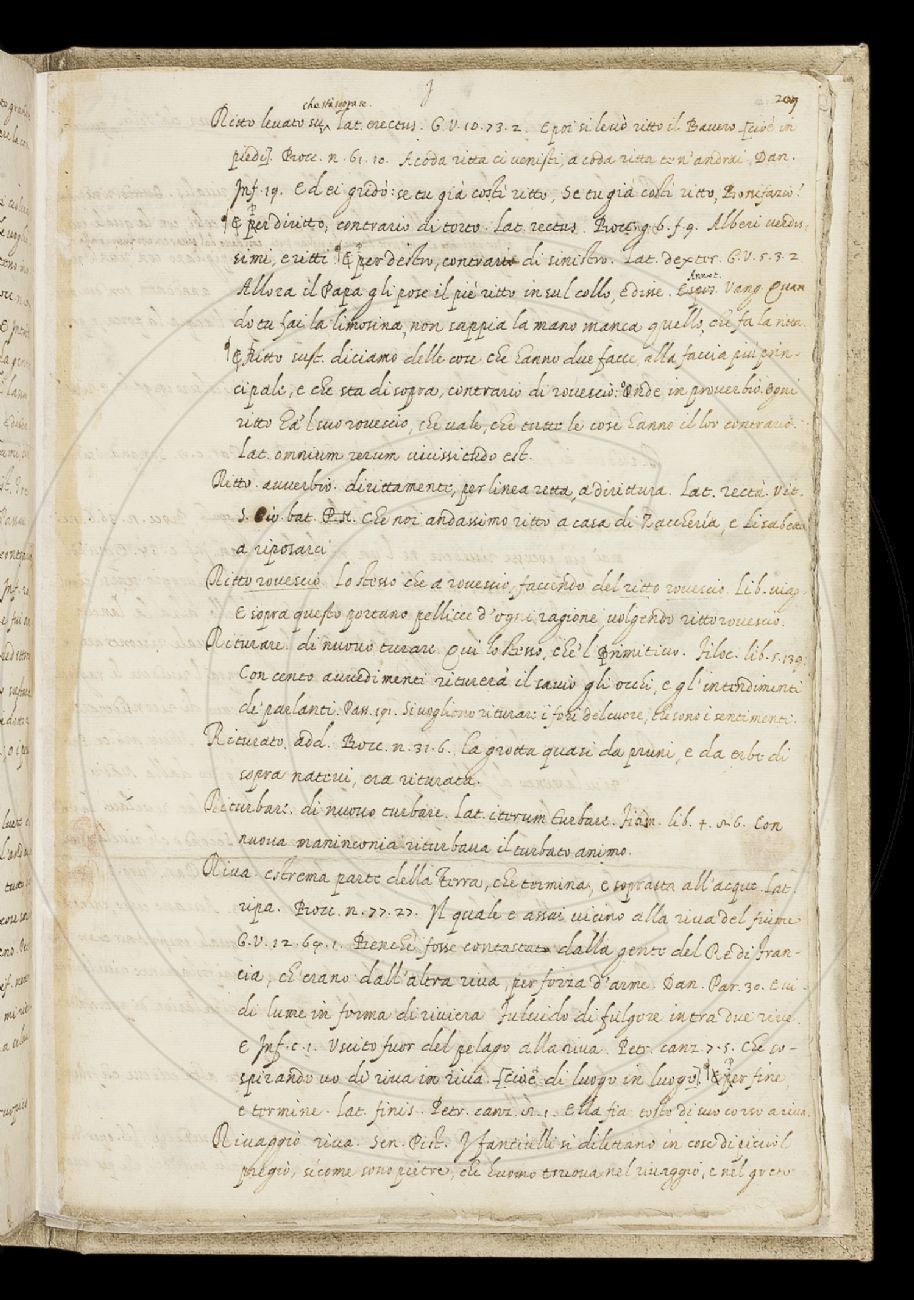 209
che stà sopra se.
Ritto levato su, Lat. erectus. G.V. 10. 73. 2. E poi si levò ritto il Bavero [cioè in
piedi]. Bocc. n. 61. 10. A coda ritta ci venisti, a coda ritta te n'andrai. Dan.
Inf. 19. Ed ei gridò: se tu già costì ritto, Se tu già costì ritto, Bonifazio?
¶ E per diritto, contrario di torto. Lat. rectus. Bocc. g. 6. f. 9. Alberi verdis-
simi, e ritti ¶ E per destro, contrario di sinistro. Lat. dexter. G.V. 5. 3. 2
Allora il Papa gli pose il piè ritto in sul collo, e disse. Annot. Vang. Quan
do tu fai la limosina, non sappia la mano manca quello, che fa la ritta.
¶ E Ritto sust. diciamo delle cose che hanno due facce, alla faccia più prin-
cipale, e che sta di sopra, contrario di rovescio: Onde in proverbio. Ogni
ritto ha 'l suo rovescio, che vale, che tutte le cose hanno il lor contrario.
Lat. omnium rerum vicissitudo est.
Ritto. avverbio. dirittamente, per linea retta, a dirittura. Lat. rectà. Vit.
S. Gio. bat. P. N. Che noi andassimo ritto a casa di Zaccheria, e Lisabetta
a riposarci
Ritto rovescio. Lo stesso che a rovescio, facendo del ritto rovescio. Lib. viag.
E sopra questo portano pellicce d'ogni ragione, volgendo ritto rovescio.
Riturare. di nuovo turare. Qui lo stesso, che 'l primitivo. Filoc. lib. 5. 139.
Con cento avvedimenti riturerà il savio gli occhi, e gl'intendimenti
de' parlanti. Pass. 191. Si vogliono riturare i fori del cuore, che sono i sentimenti.
Riturato. add. Bocc. n. 31. 6. La grotta quasi da pruni, e da erbe di
sopra natevi, era riturata.
Riturbare. di nuovo turbare. Lat. iterum turbare. Fiam. lib. 4. Con
nuova maninconia riturbava il turbato animo.
Riva. estrema parte della Terra, che termina, e soprasta all'acque. Lat.
ripa. Bocc. n. 77. 27. Il quale è assai vicino alla riva del fiume
G.V. 12. 64. 1. Benchè fosse contastato dalla gente del Re di Fran-
cia, ch'erano dall'altra riva, per forza d'arme. Dan. Par. 30. E vi-
di lume in forma di riviera Fulvido di fulgore intra due rive.
E Inf. c. 1. Uscito fuor del pelago alla riva. Petr. canz. 7. 5. Che so-
spirando vo di riva in riva. [cioè di luogo in luogo]. ¶ E per fine,
e termine. Lat. finis. Petr. canz. Ella fia tosto di suo corso a riva.
Rivaggio riva. Sen. Pist. I fanticelli si dilettano in cose di picciol
pregio, sì come sono pietre, che l'uomo truova nel rivaggio, e nel greto